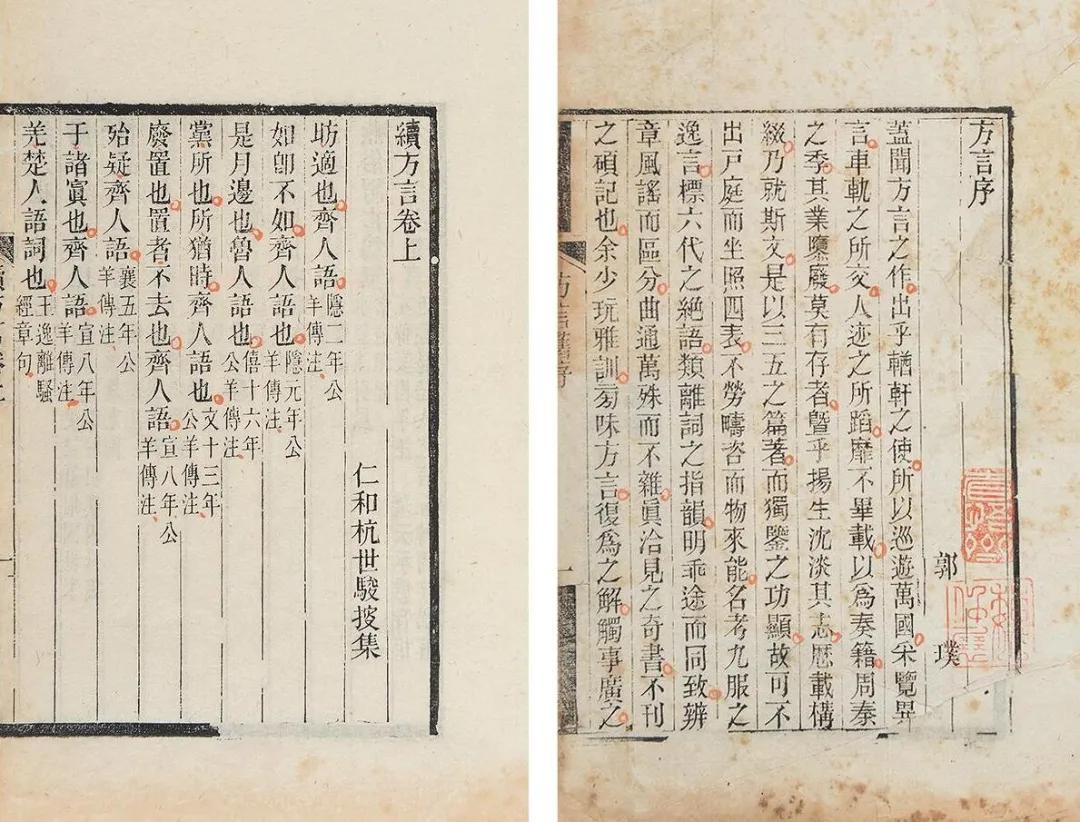 方言序
郭璞
蓋聞方言之作出乎輶軒之使所以巡遊萬國采覽異
言車軌之所交人迹之所蹈靡不畢載以爲奏籍周秦
之季其業隳廢莫有存者曁乎揚生沈淡其志歴載構
綴乃就斯文是以三五之篇著而獨鑒之功顯故可不
出戸庭而坐照四表不勞疇咨而物來能名考九服之
逸言標六代之絕語類離詞之指韻明乖途而同致辨
章風謠而區分曲通萬殊而不雜眞洽見之奇書不刊
之碩記也余少玩雅訓旁味方言復爲之解觸事廣之
續方言卷上
仁和杭世駿披集
坊適也齊人語隱二年公羊傳注
如卽不如齊人語也隱元年公羊傳注
是月邊也魯人語也僖十六年公羊傳注
黨所也所猶時齊人語也文十三年公羊傳注
廢置也置者不去也齊人語宣八年公羊傳注
殆疑齊人語襄五年公羊傳注
于諸寘也齊人語宣八年公羊傳注
羌楚人語詞也王逸離騷經章句